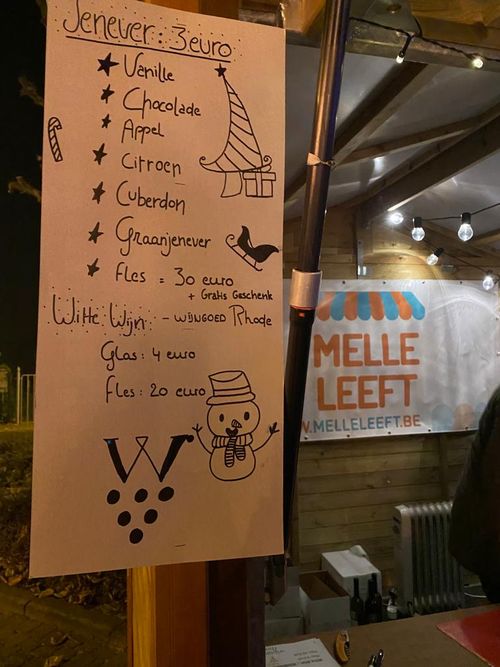 Jenever: 3 euro
Vanille
Chocolade
Appel
Citroen
Cuberdon
Graanjenever
Fles = 30 euro
+ Gratis Geschenk
Witte Wijn: - WIJNGOED Rhode
Glas: 4 euro
Fles: 20 euro
W
MELLE
LEEFT
W.MELLELEEFT.BE